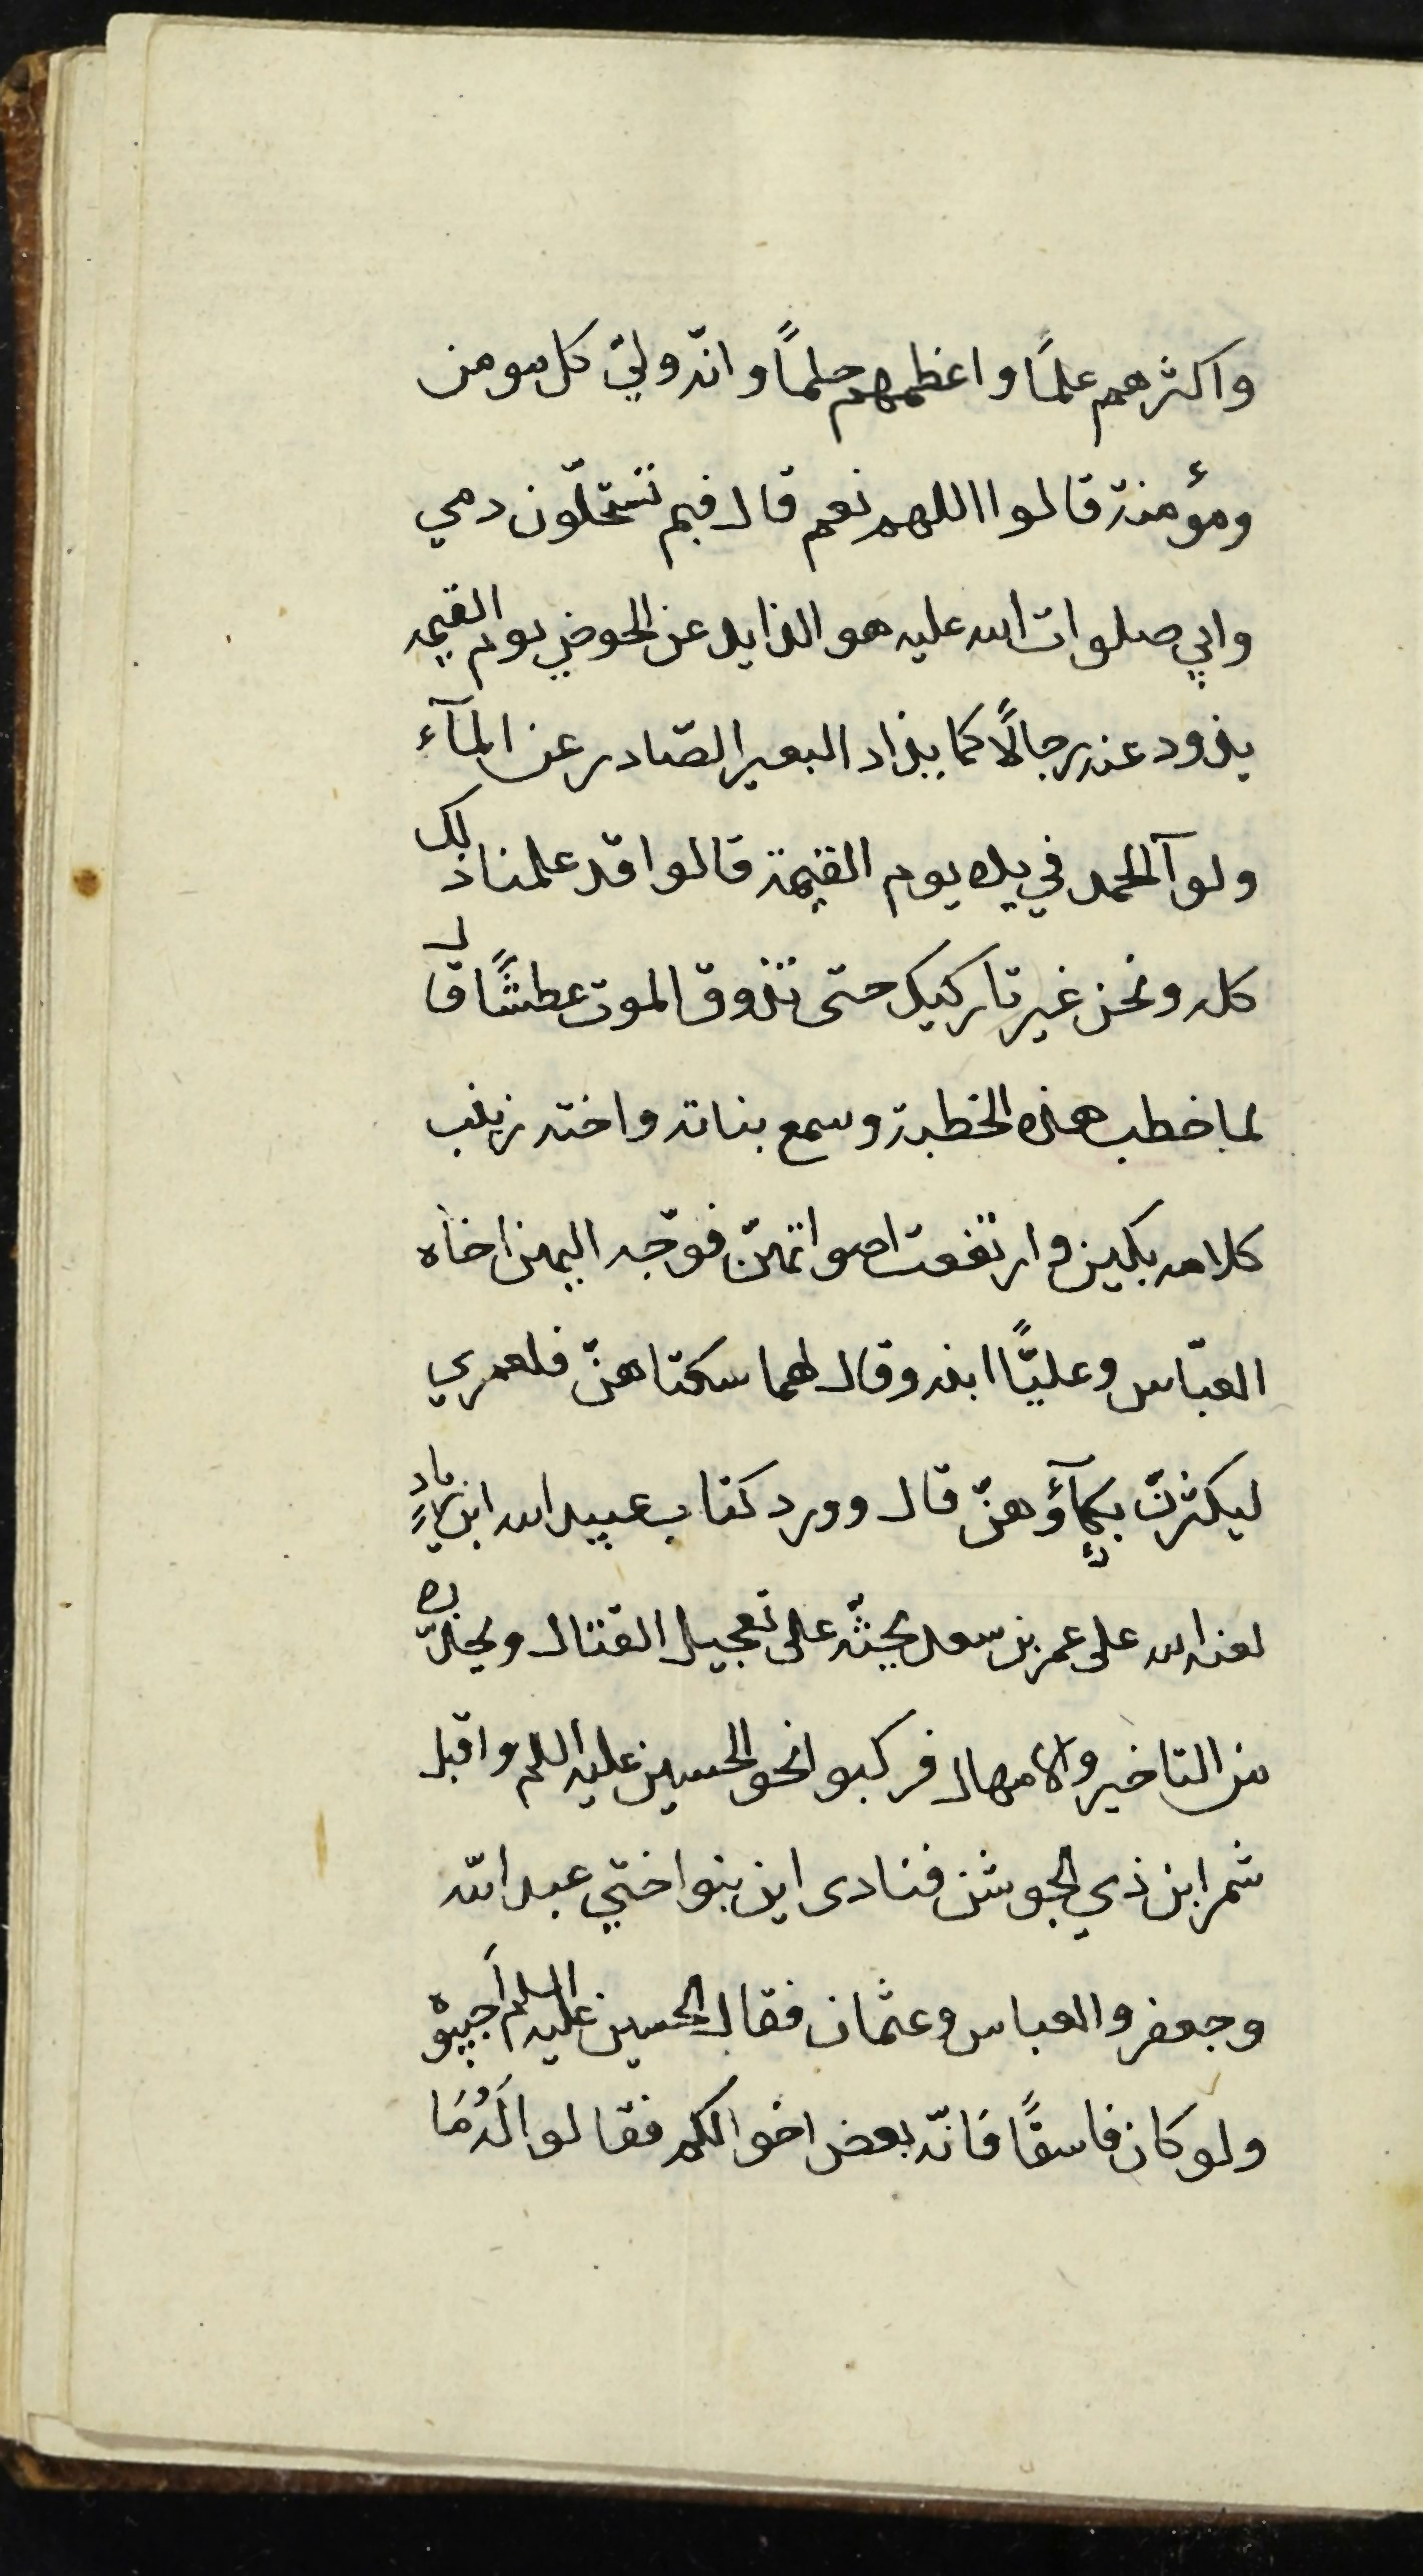 واكثرهم علمًا واعظمهم حلمًا وانّه وليّ كل مومن
ومؤمنة قالوا اللهم نعم قال فبم تستحلّون دمي
وابي صلوات الله عليه هو الذايد عن الحوض يوم القيمه
يذود عنه رجالًا كما يذاد البعير الصّادر عن المآء
ولوآ الحمد في يده يوم القيمة قالوا قد علمنا ذلك
كله ونحن غير تاركيك حتى تذوق الموت عطشًا قال
لما خطب هذه الخطبة وسمع بناته واخته زينب
كلامه بكين وارتفعت اصواتهنّ فوجّه اليهن اخاه
العبّاس وعليًّا ابنه وقال لهما سكتاهنّ فلعمري
ليكثرنّ بكآؤهنّ قال وورد كتاب عبيد الله ابن زيادٍ
لعنه الله على عمر بن سعد يحثّه على تعجيل القتال ويحذّره
من التاخير والامهال فركبوا نحو الحسين عليه السلم واقبل
شمر ابن ذي الجوشن فنادى اين بنو اختي عبد الله
وجعفر والعباس وعثمان فقال الحسين عليه السلم أجيبوه
ولو كان فاسقًا فانّه بعض اخوالكم فقالوا لَهُ مَا